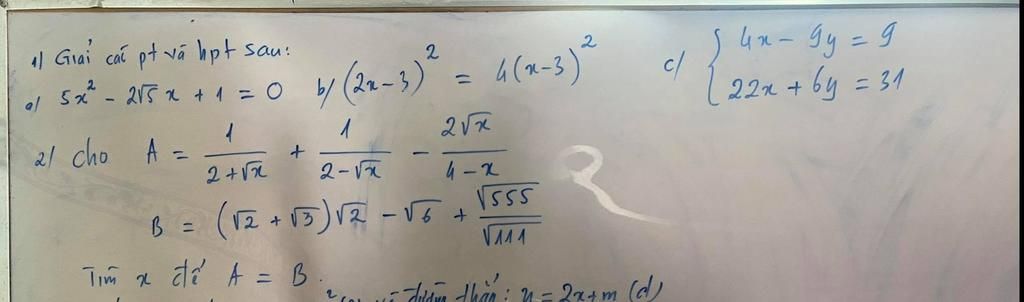 1) Giải các pt và hpt sau:
a) 5x² - 2√5 x + 1 = 0 b) (2x-3)² = 4(x-3)² c) { 4x - 9y = 9
22x + 6y = 31
2) cho A = 1/(2+√x) + 1/(2-√x) - 2√x/(4-x)
B = (√2 + √3)√2 - √6 + √555/√111
Tìm x để A = B.
đường thẳng: y = 2x+m (d)